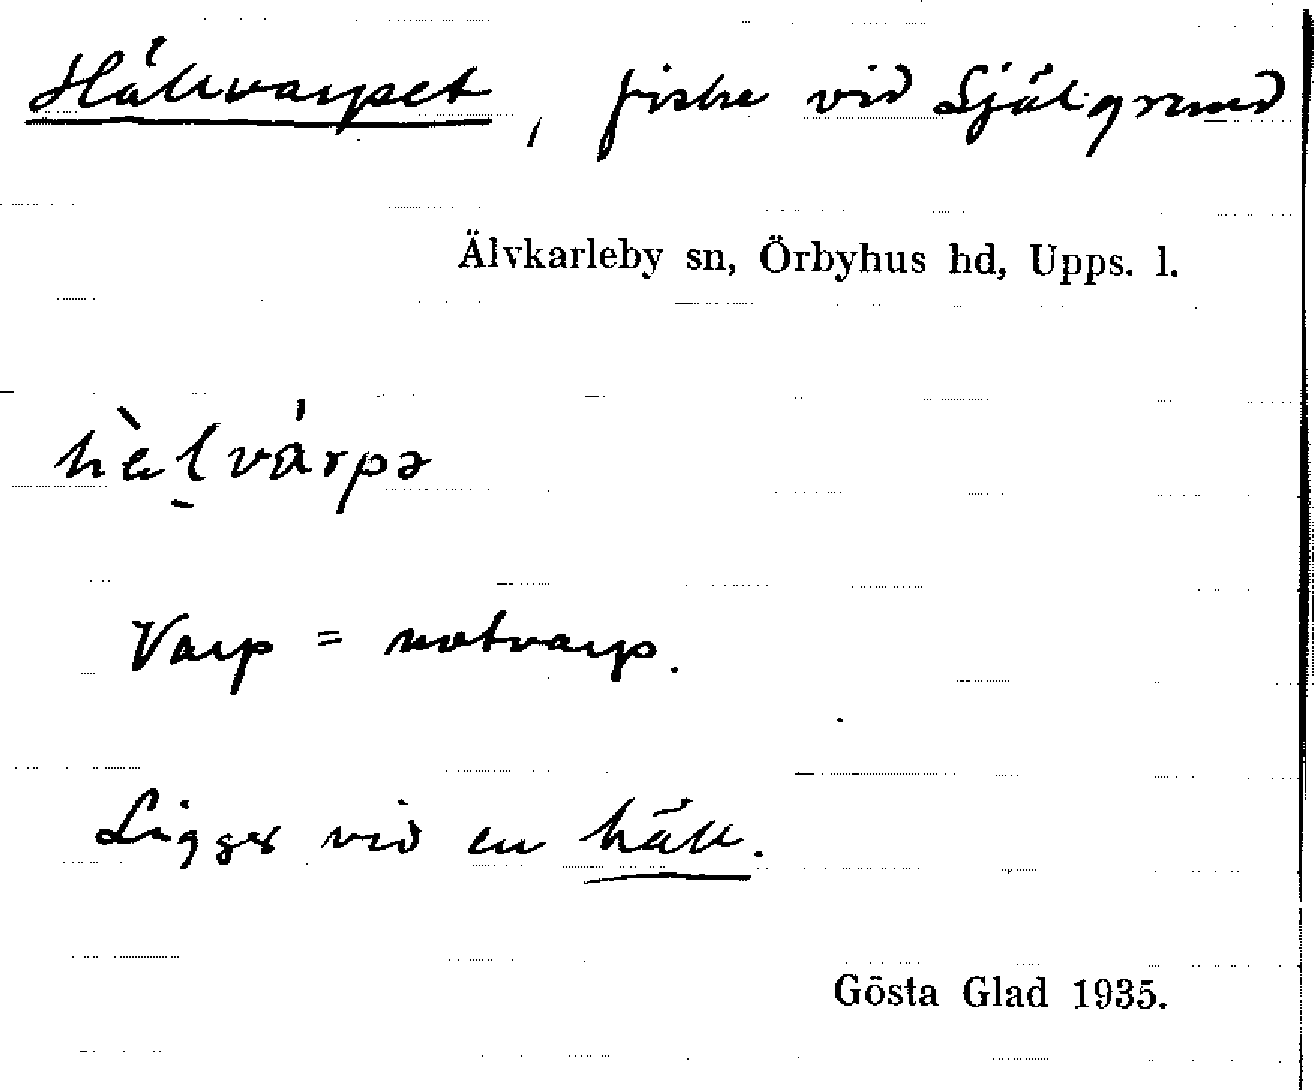 Hällvarpet, fiske vid Själgrund
Älvkarleby sn, Örbyhus hd, Upps. l.
hὲl̠várpə
Varp = notvarp.
Ligger vid en häll.
Gösta Glad 1935.